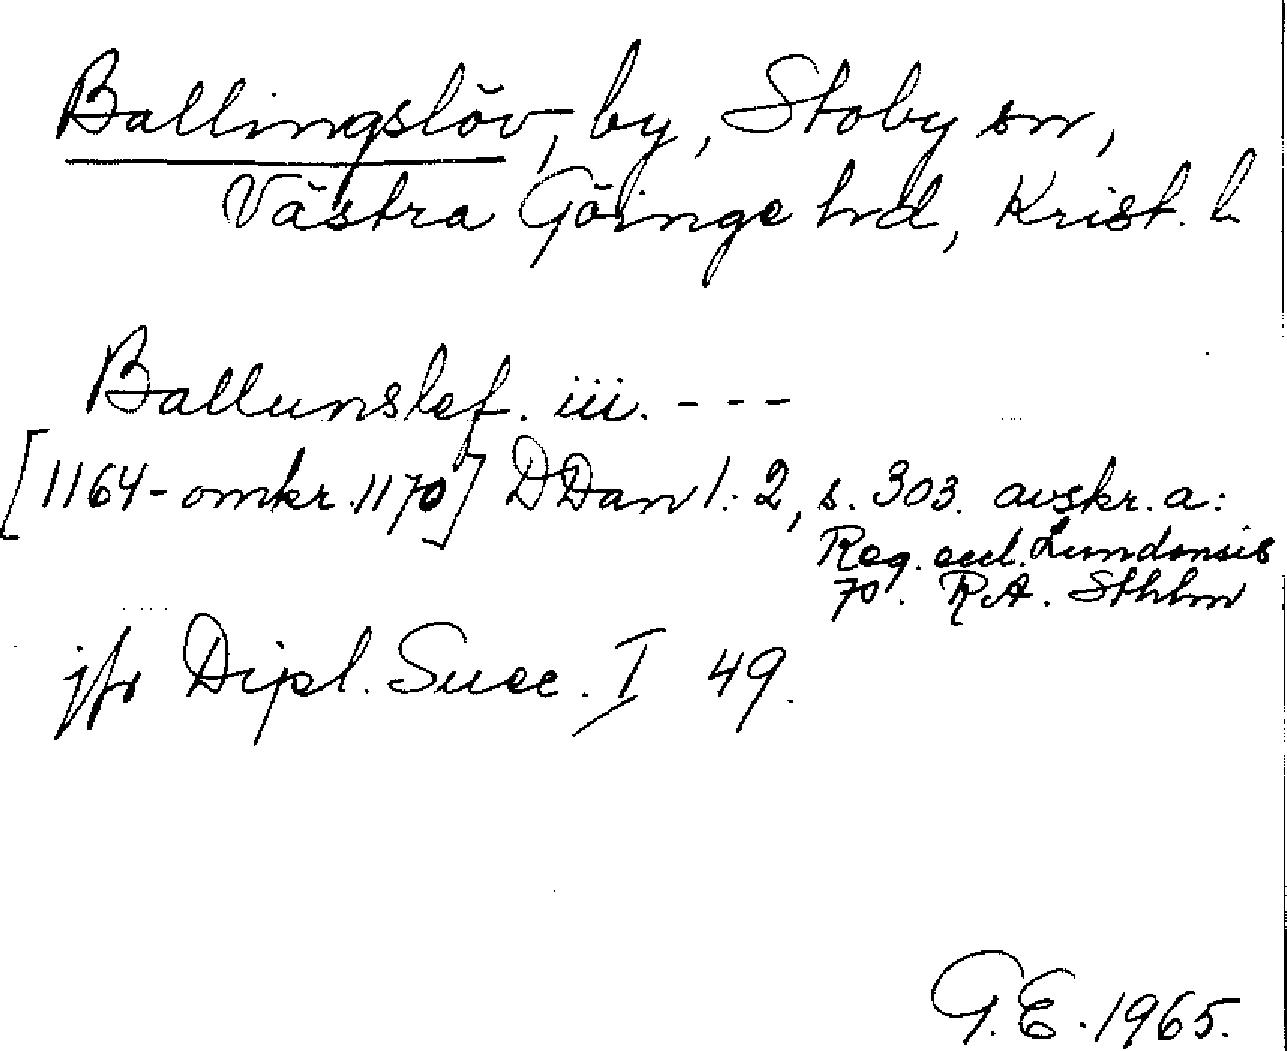 Ballingslöv, by, Stoby sn,
Västra Göinge hd, Krist. l
Ballunslef. iii. ---
[1164-omkr.1170] DDan 1:2, s. 303. avskr. a:
Reg. eccl. Lundensis
70. RA. Sthlm
jfr Dipl. Suec. I 49.
G.E. 1965.